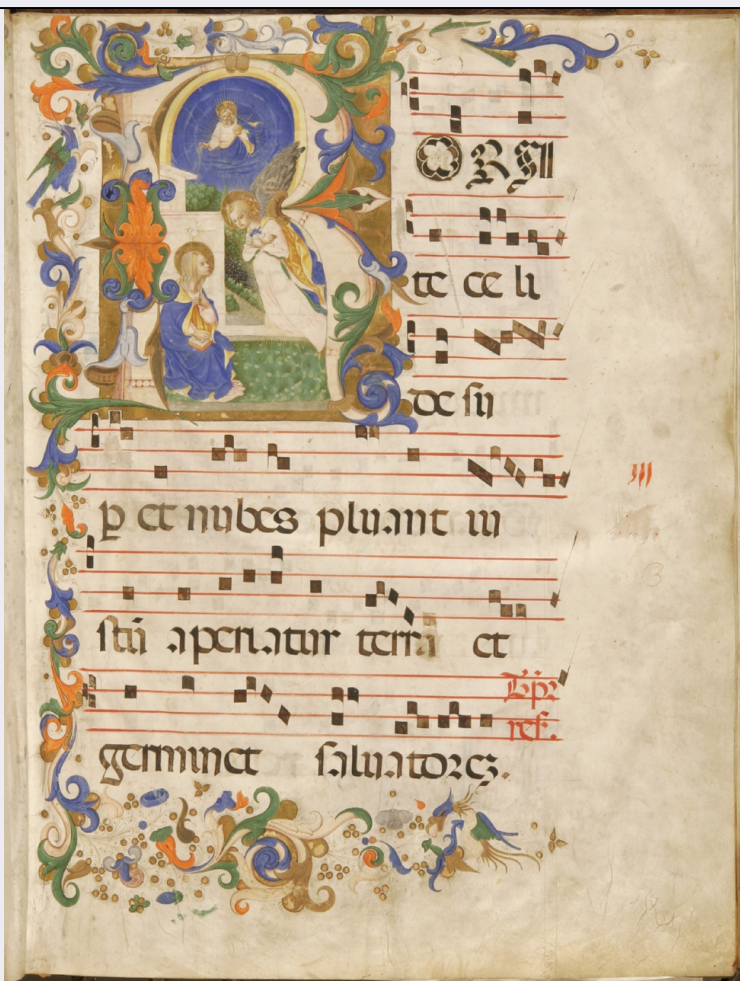 RORAI
te celi
de suꝑ
ꝑ et nubes pluant iu
stū aperiatur terra et
germinet saluatorez.
iii